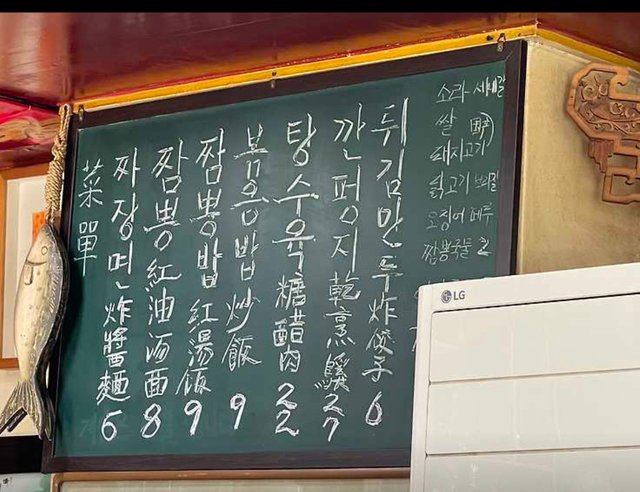 菜單
짜장면 炸醬麵 6
짬뽕 紅油湯面 8
짬뽕밥 紅湯飯 9
볶음밥 炒飯 9
탕수육 糖醋肉 22
깐펑지 乾烹鷄 27
튀김만두 炸餃子 6
소라 세네갈
쌀
돼지고기
닭고기 브라질
오징어 페루
짬뽕국물
LG